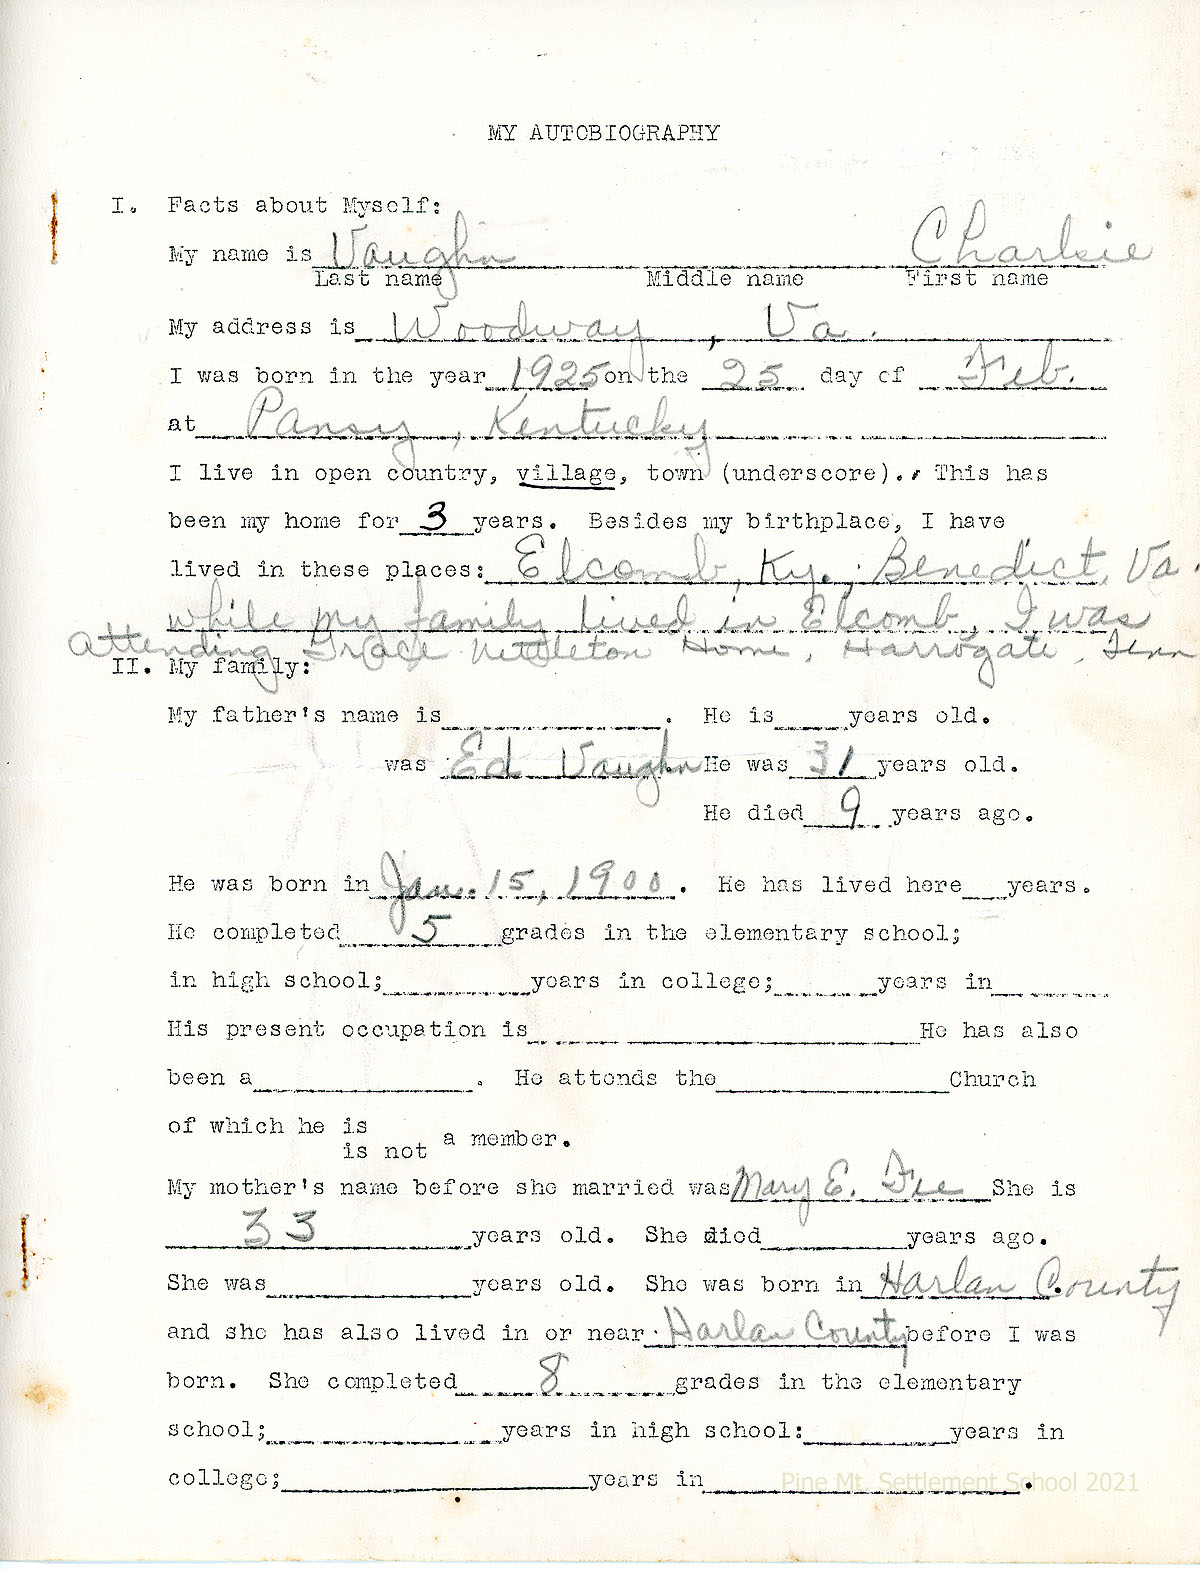 MY AUTOBIOGRAPHY
I. Facts about Myself:
My name is Vaughn Charlsie
Last name Middle name First name
My address is Woodway, Va.
I was born in the year 1925 on the 25 day of Feb.
at Pansy, Kentucky
I live in open country, village, town (underscore). This has
been my home for 3 years. Besides my birthplace, I have
lived in these places: Elcomb, Ky.; Benedict, Va.
while my family lived in Elcomb, I was
attending Grace Nettleton Home, Harrogate, Tenn
II. My family:
My father's name is____. He is____years old.
was Ed Vaughn He was 31 years old.
He died 9 years ago.
He was born in Jan. 15, 1900. He has lived here__years.
He completed 5 grades in the elementary school;
in high school;____years in college;____years in____
His present occupation is____He has also
been a____. He attends the____Church
of which he is
is not a member.
My mother's name before she married was Mary E. Fee She is
33 years old. She died____years ago.
She was____years old. She was born in Harlan County.
and she has also lived in or near Harlan County before I was
born. She completed 8 grades in the elementary
school;____years in high school:____years in
college;____years in____.
Pine Mt. Settlement School 2021